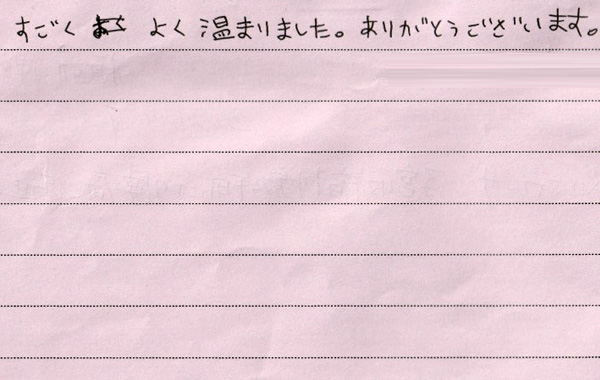 すごく よく温まりました。ありがとうございます。